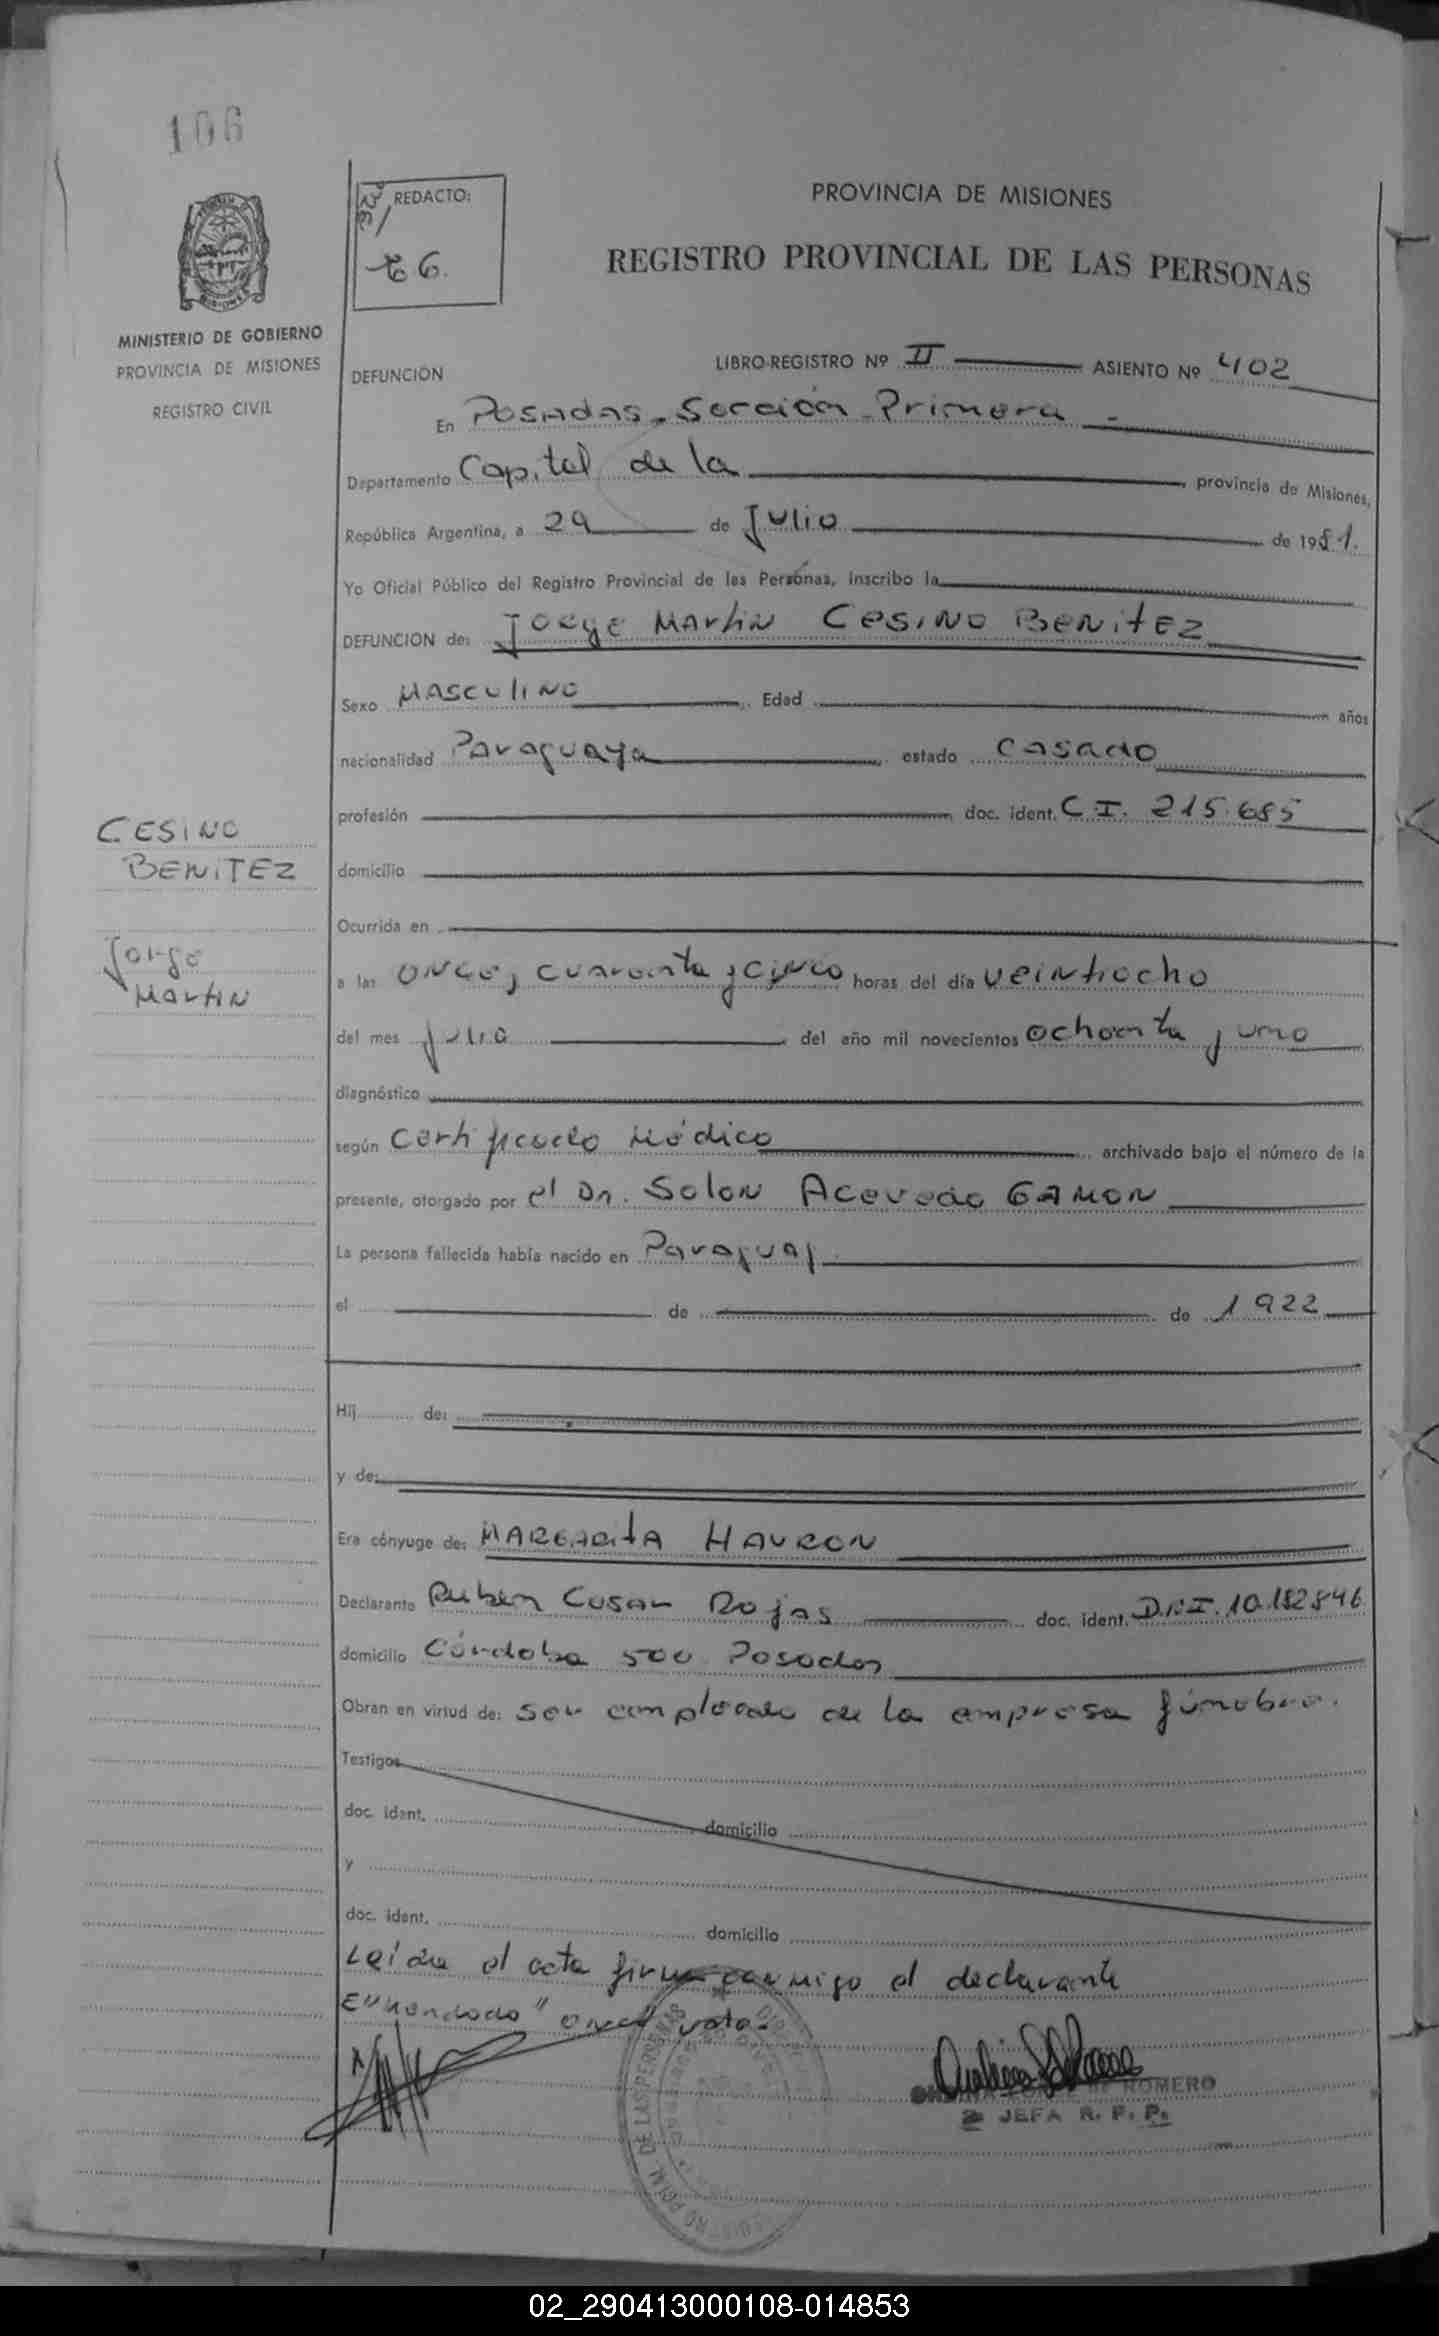 106
REDACTO:
PROVINCIA DE MISIONES
REGISTRO PROVINCIAL DE LAS PERSONAS
MINISTERIO DE GOBIERNO
PROVINCIA DE MISIONES
REGISTRO CIVIL
DEFUNCIÓN LIBRO-REGISTRO Nº II ASIENTO Nº 402
En Posadas. Sección Primera -
Departamento Capital de la provincia de Misiones,
República Argentina, a 29 de Julio de 1981.
Yo Oficial Público del Registro Provincial de las Personas, inscribo la
DEFUNCION de: Jorge Martin Cesino Benitez
Sexo Masculino Edad años
nacionalidad Paraguaya estado casado
profesión doc. ident. C.I. 215.685
CESINO
BENITEZ
Jorge
Martin
domicilio
Ocurrida en
a las once, cuarenta y cinco horas del día veintiocho
del mes julio del año mil novecientos ochenta y uno
diagnóstico
según Certificado Médico archivado bajo el número de la
presente, otorgado por el Dr. Solon Acevedo Gamon
La persona fallecida había nacido en Paraguay.
el de de 1922
Hij de:
y de:
Era cónyuge de: Margarita Hauron
Declarante Ruben Cesar Rojas doc. ident. D.N.I. 10.182.846
domicilio Córdoba 500 Posadas
Obran en virtud de: ser empleado de la empresa fúnebre.
Testigos
doc. ident. domicilio
y
doc. ident. domicilio
Leída el acta firma conmigo el declarante
DE ROMERO
JEFA R. P. P.
DE LAS PERSONAS
02_290413000108-014853